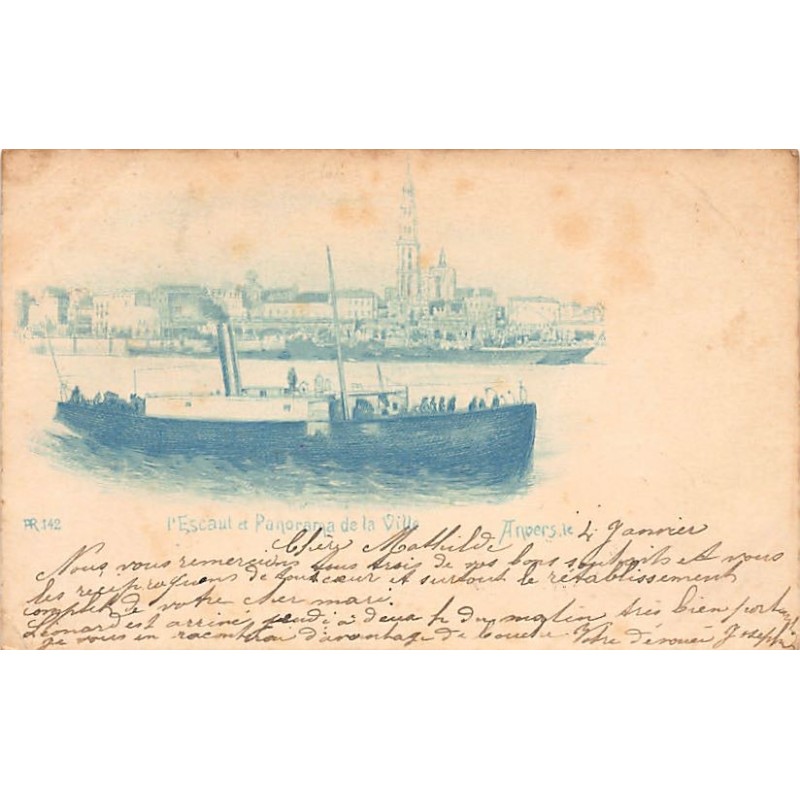 PR 142
l'Escaut et Panorama de la Ville
Anvers, le 4 Janvier
Chère Mathilde
Nous vous remercions tous trois de vos bons souhaits et vous
les réciproquons de tout cœur et surtout le rétablissement
complet de votre cher mari.
Léonard est arrivé jeudi à deux h du matin très bien port
je vous en racontrai d'avantage de bouche Votre dévouée Joseph